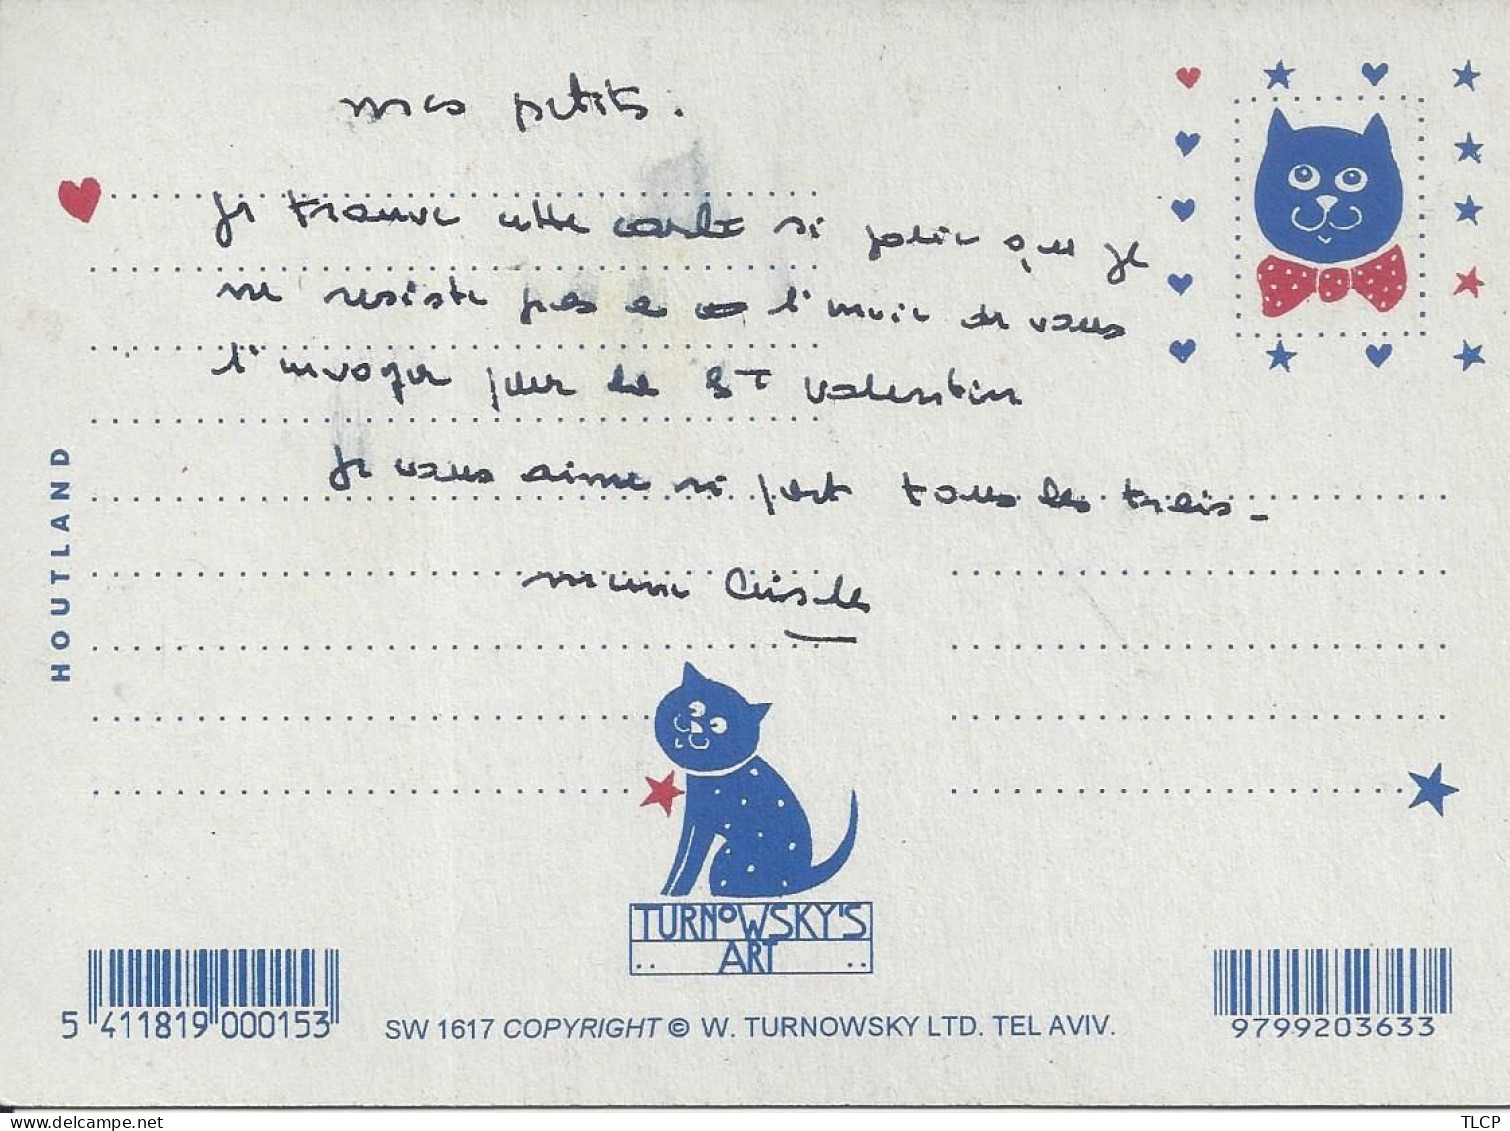 mes petits.
Je trouve cette carte si jolie que je
ne resiste pas a l'envie de vous
l'envoyer pour la St Valentin
Je vous aime si fort tous les trois -
HOUTLAND
TURNOWSKY'S
ART
5 411819 000153
SW 1617 COPYRIGHT © W. TURNOWSKY LTD. TEL AVIV.
9799203633
delcampe.net
TLCP